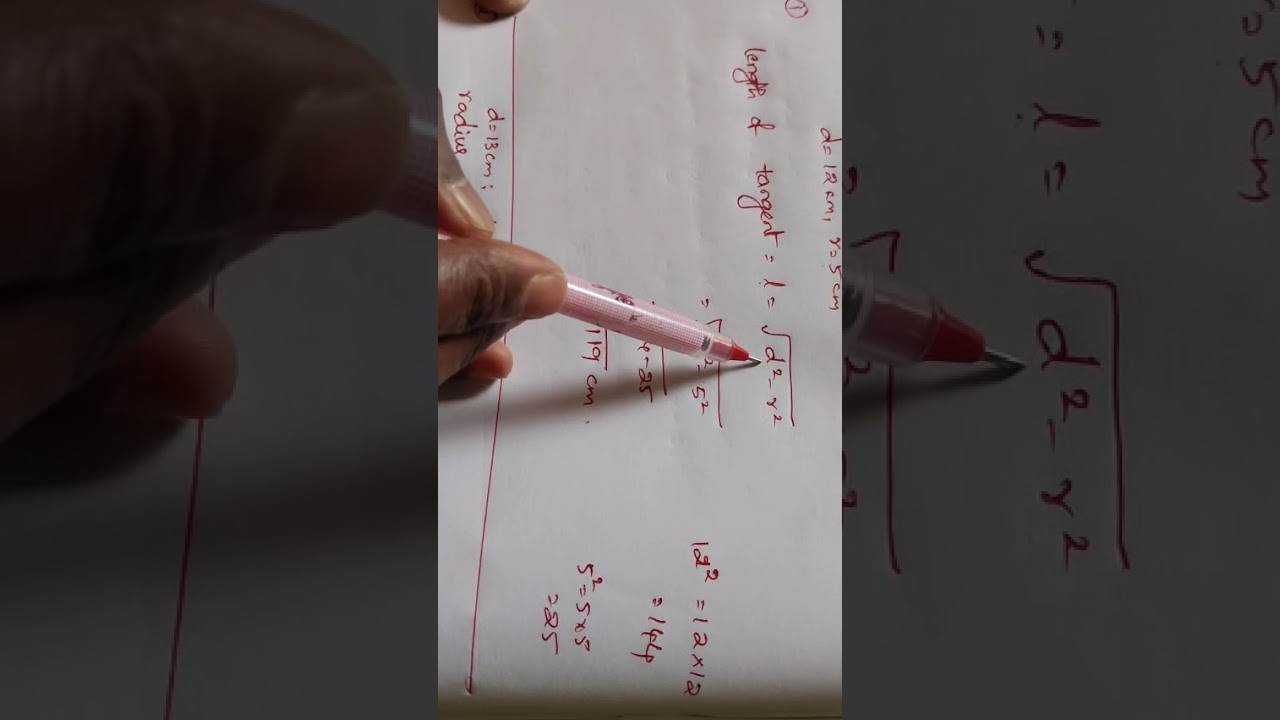 ①
d = 12 cm, r = 5 cm
length of tangent = l = √d² - r²
= √ 2 - 5²
- 25
119 cm.
12² = 12 × 12
= 144
5² = 5 × 5
= 25
d = 13 cm;
radius